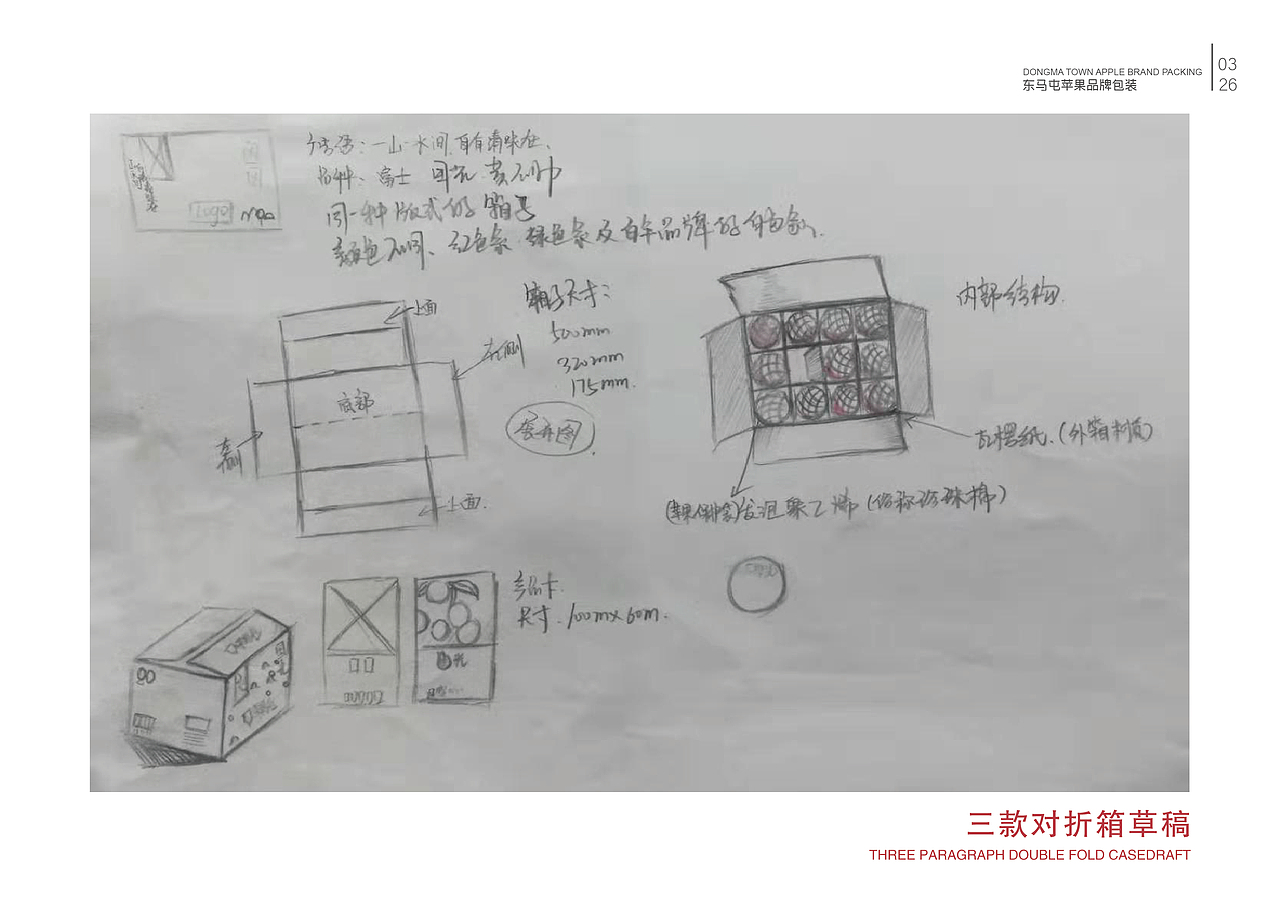 DONGMA TOWN APPLE BRAND PACKING
东马屯苹果品牌包装
03
26
广告语:一山一水间,自有清味在、
品种、富士 国光 黄小帅
同一种版式的箱子
颜色不同、红色系 绿色系及自车品牌的自色系、
Logo
上面
箱子尺寸:
500mm
320mm
175mm.
右侧
底部
展开图
左侧
上面.
内部结构.
瓦楞纸.(外箱材质)
发泡聚乙烯(俗称珍珠棉)
产品卡.
尺寸.100mx60m.
三款对折箱草稿
THREE PARAGRAPH DOUBLE FOLD CASEDRAFT